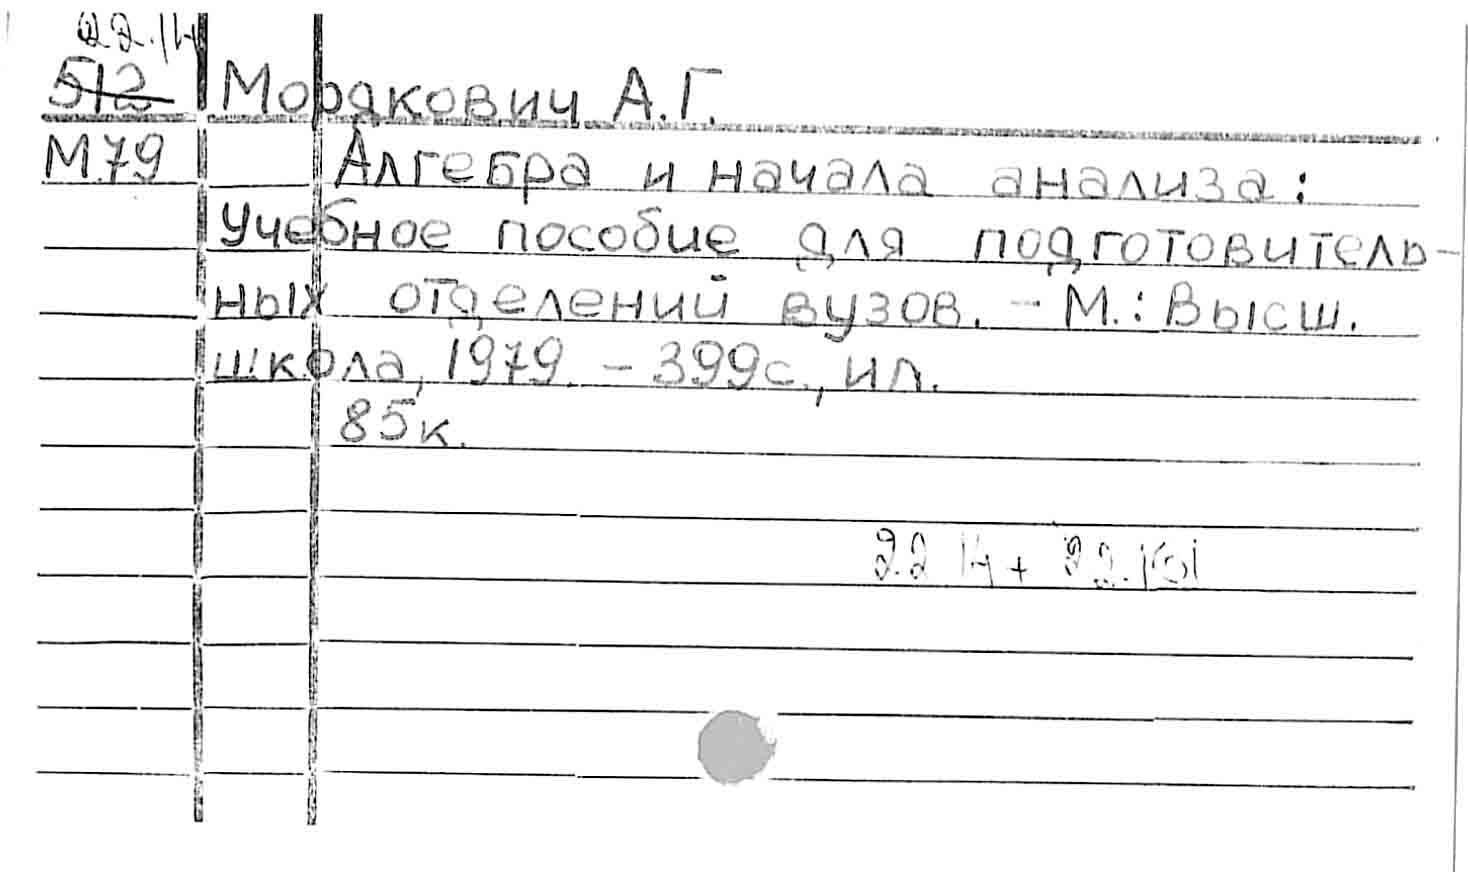 22.14
512 Мордкович А.Г.
М79 Алгебра и начала анализа:
Учебное пособие для подготовитель-
ных отделений вузов. - М.: Высш.
школа, 1979. - 399с., ил.
85к.
22 14 + 22.161